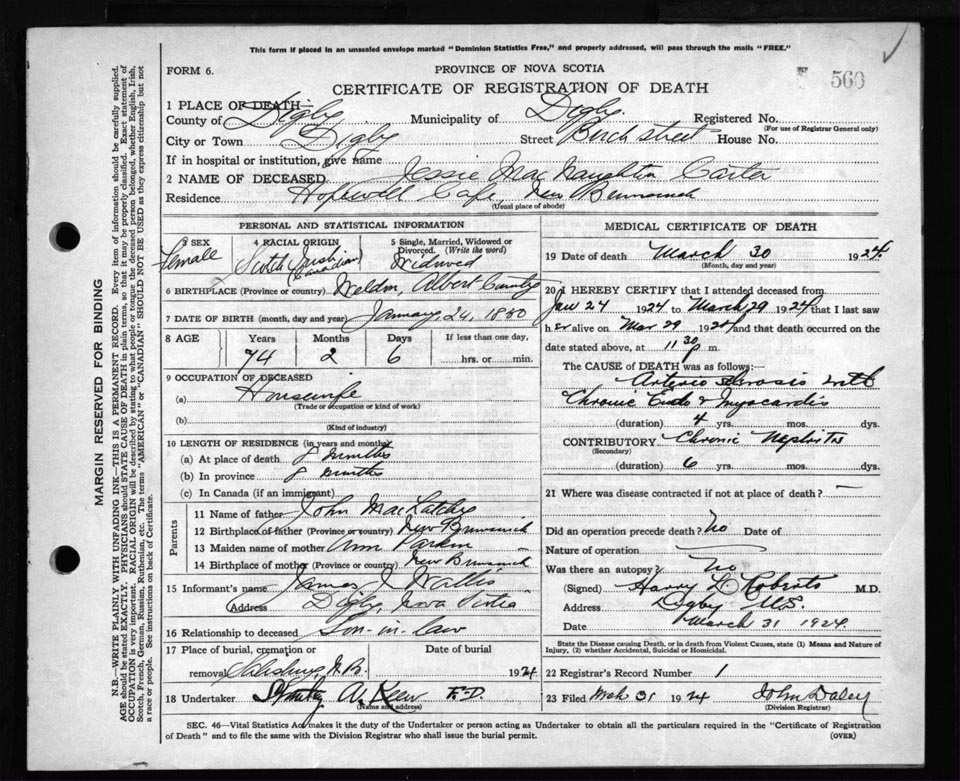 This form if placed in an unsealed envelope marked "Dominion Statistics Free," and properly addressed, will pass through the mails "FREE."
FORM 6.
PROVINCE OF NOVA SCOTIA
560
CERTIFICATE OF REGISTRATION OF DEATH
1 PLACE OF DEATH:
County of Digby Municipality of Digby. Registered No.
(For use of Registrar General only)
City or Town Digby Street Birch street House No.
If in hospital or institution, give name
2 NAME OF DECEASED Jessie Mac Naughton Carter
Residence Hopewell Cape, New Brunswick
(Usual place of abode)
PERSONAL AND STATISTICAL INFORMATION
3 SEX Female
4 RACIAL ORIGIN Scotch Irish (Canadian)
5 Single, Married, Widowed or Divorced. (Write the word) Widowed
6 BIRTHPLACE (Province or country) Weldon, Albert County
7 DATE OF BIRTH (month, day and year) January, 24, 1850
8 AGE Years Months Days If less than one day,
74 2 6 hrs. or min.
9 OCCUPATION OF DECEASED
(a) Housewife
(Trade or occupation or kind of work)
(b)
(Kind of industry)
10 LENGTH OF RESIDENCE (in years and months)
(a) At place of death months
(b) In province months
(c) In Canada (if an immigrant)
Parents
11 Name of father John MacLatchy
12 Birthplace of father (Province or country) New Brunswick
13 Maiden name of mother Ann Parkin
14 Birthplace of mother (Province or country) New Brunswick
15 Informant's name James J Wallis
Address Digby, Nova Scotia
16 Relationship to deceased Son-in-law
17 Place of burial, cremation or removal Date of burial
Salisbury, N.B. 1924
18 Undertaker A. F.D.
(Name and address)
MEDICAL CERTIFICATE OF DEATH
19 Date of death March 30 1924
(Month, day and year)
20 I HEREBY CERTIFY that I attended deceased from
Jan 24 1924 to March 29 1924 that I last saw
h er alive on Mar 29 1924 and that death occurred on the
date stated above, at 11 30 p m.
The CAUSE of DEATH was as follows:
Arterio Sclerosis with
Chronic Endo & Myocarditis
(duration) 4 yrs. mos. dys.
CONTRIBUTORY Chronic Nephritis
(Secondary)
(duration) 6 yrs. mos. dys.
21 Where was disease contracted if not at place of death?
Did an operation precede death? No Date of
Nature of operation
Was there an autopsy? No
(Signed) Harry L Roberts M.D.
Address Digby N.S.
Date March 31 1924
State the Disease causing Death, or in death from Violent Causes, state (1) Means and Nature of Injury, (2) whether Accidental, Suicidal or Homicidal.
22 Registrar's Record Number 1
23 Filed Mch 31 1924 John Daley
(Division Registrar)
SEC. 46—Vital Statistics Act makes it the duty of the Undertaker or person acting as Undertaker to obtain all the particulars required in the "Certificate of Registration
of Death" and to file the same with the Division Registrar who shall issue the burial permit. (OVER)
MARGIN RESERVED FOR BINDING
N.B.—WRITE PLAINLY WITH UNFADING INK—THIS IS A PERMANENT RECORD. Every item of information should be carefully supplied.
AGE should be stated EXACTLY. PHYSICIANS should STATE CAUSE OF DEATH in plain terms, so that it may be properly classified. Exact statement of
OCCUPATION is very important. RACIAL ORIGIN will be described by stating to what people or tongue the deceased person belonged, whether English, Irish,
Scotch, French, German, Russian, Ruthenian, etc. The terms "AMERICAN" or "CANADIAN" SHOULD NOT BE USED as they express citizenship but not
a race or people. See instructions on back of Certificate.